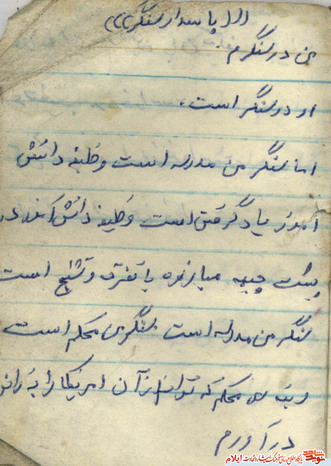 (((پاسدار سنگر)))
من در سنگرم.
او در سنگر است.
اما سنگر من مدرسه است وظیفه دانش
آموز یاد گرفتن است وظیفه دانش آموز در
پشت جبهه مبارزه با تفرقه و تشنج است
سنگر من مدرسه است سنگری محکم است
محکم که توانم از آن امریکا را به زانو
درآورم